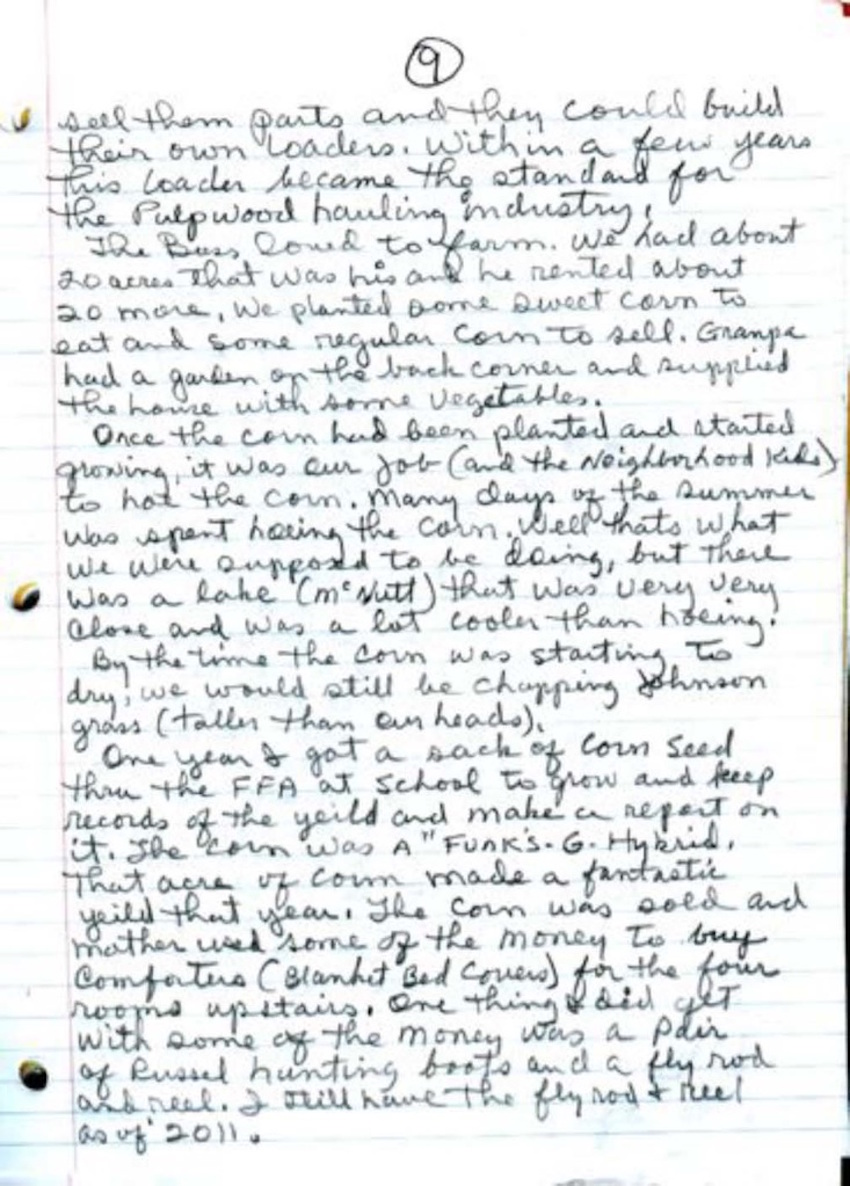 9
sell them parts and they could build
their own loaders. Within a few years
this loader became the standard for
the Pulpwood hauling industry.
The Boss loved to farm. We had about
20 acres that was his and he rented about
20 more, We planted some sweet corn to
eat and some regular corn to sell. Granpa
had a garden on the back corner and supplied
the house with some vegetables.
Once the corn had been planted and started
growing, it was our job (and the Neighborhood Kids)
to hoe the corn. Many days of the summer
was spent hoeing the corn. Well thats what
we were supposed to be doing, but there
was a lake (McNutt) that was very very
close and was a lot cooler than hoeing.
By the time the corn was starting to
dry, we would still be chopping Johnson
grass (taller than our heads).
One year I got a sack of Corn Seed
thru the FFA at School to grow and keep
records of the yeild and make a report on
it. The corn was A "FUNK'S-G-Hybrid.
That acre of corn made a fantastic
yeild that year. The corn was sold and
mother used some of the money to buy
Comforters (Blanket Bed Covers) for the four
rooms upstairs. One thing I did get
with some of the money was a pair
of Russel hunting boots and a fly rod
and reel. I still have the fly rod & reel
as of 2011.